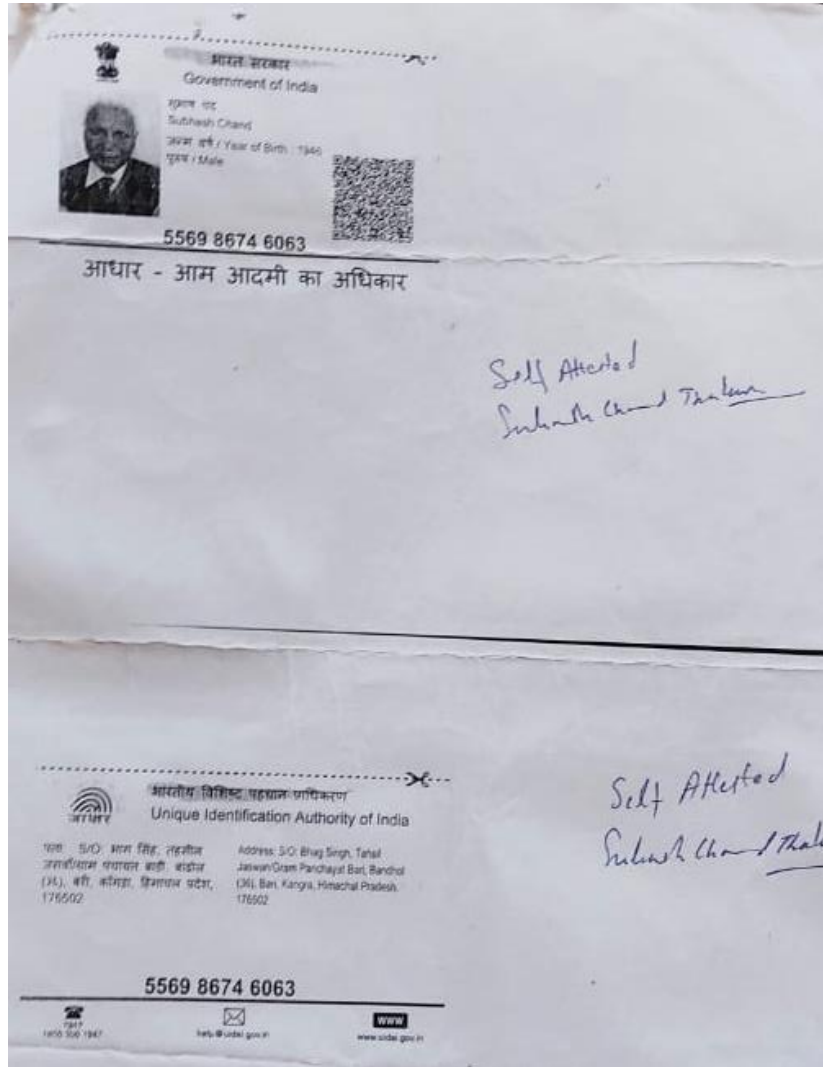 भारत सरकार
Government of India
सुभाष चंद
Subhash Chand
जन्म वर्ष / Year of Birth : 1946
पुरुष / Male
5569 8674 6063
आधार - आम आदमी का अधिकार
Self Attested
Subhash Chand Thakur
भारतीय विशिष्ट पहचान प्राधिकरण
आधार
Unique Identification Authority of India
पता: S/O: भाग सिंह, तहसील
जसवाँ/ग्राम पंचायत बारी, बांडोल
(36), बरी, काँगड़ा, हिमाचल प्रदेश,
176502
Address: S/O: Bhag Singh, Tahsil
Jaswan/Gram Panchayat Bari, Bandhol
(36), Bari, Kangra, Himachal Pradesh,
176502
Self Attested
Subhash Chand Thak
5569 8674 6063
1947
1800 300 1947
help@uidai.gov.in
www
www.uidai.gov.in